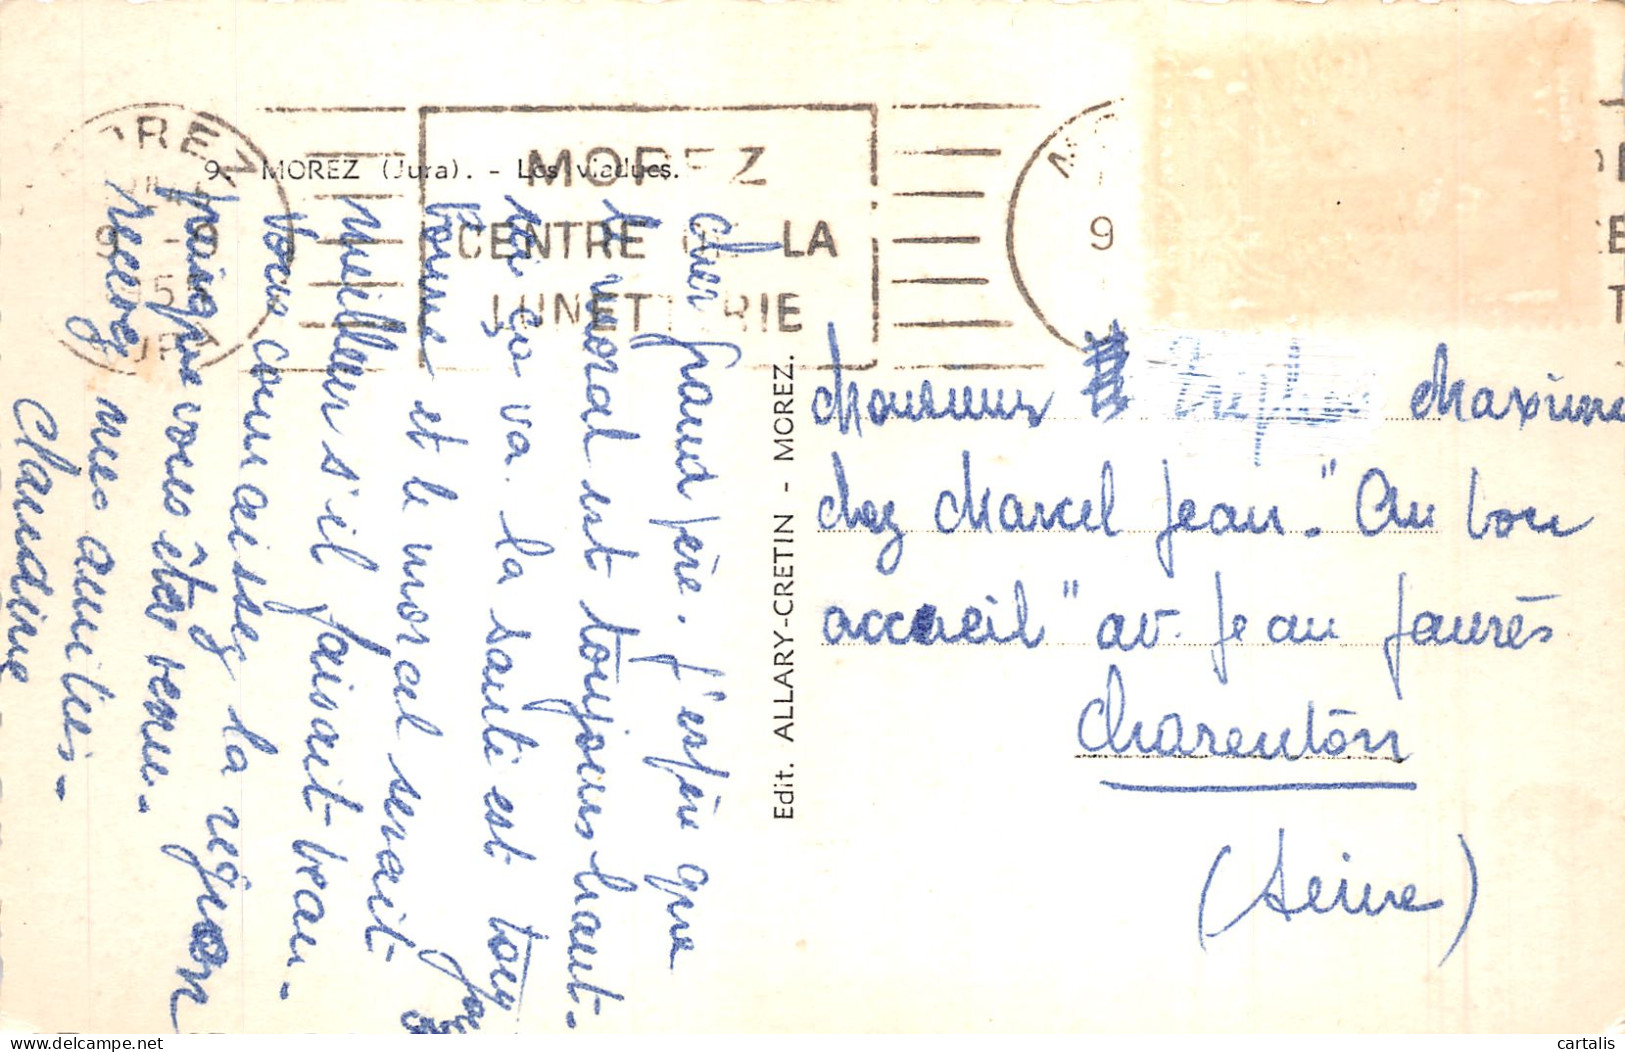 9. MOREZ (Jura). - Les viaducs.
MOREZ
CENTRE DE LA
LUNETTERIE
9 - 9
1955
JURA
Cher grand père. J'espère que
le moral est toujours haut.
Ici ça va. la santé est touj
bonne et le moral serait
meilleur s'il faisait beau.
Vous connaissez la région
puisque vous êtes venu.
Recevez mes amitiés.
Claudine
Edit. ALLARY-CRETIN - MOREZ.
Monsieur Maxime
chez Marcel Jean. "Au bon
accueil" av. Jean Jaurès
Charenton
(Seine)
cartalis